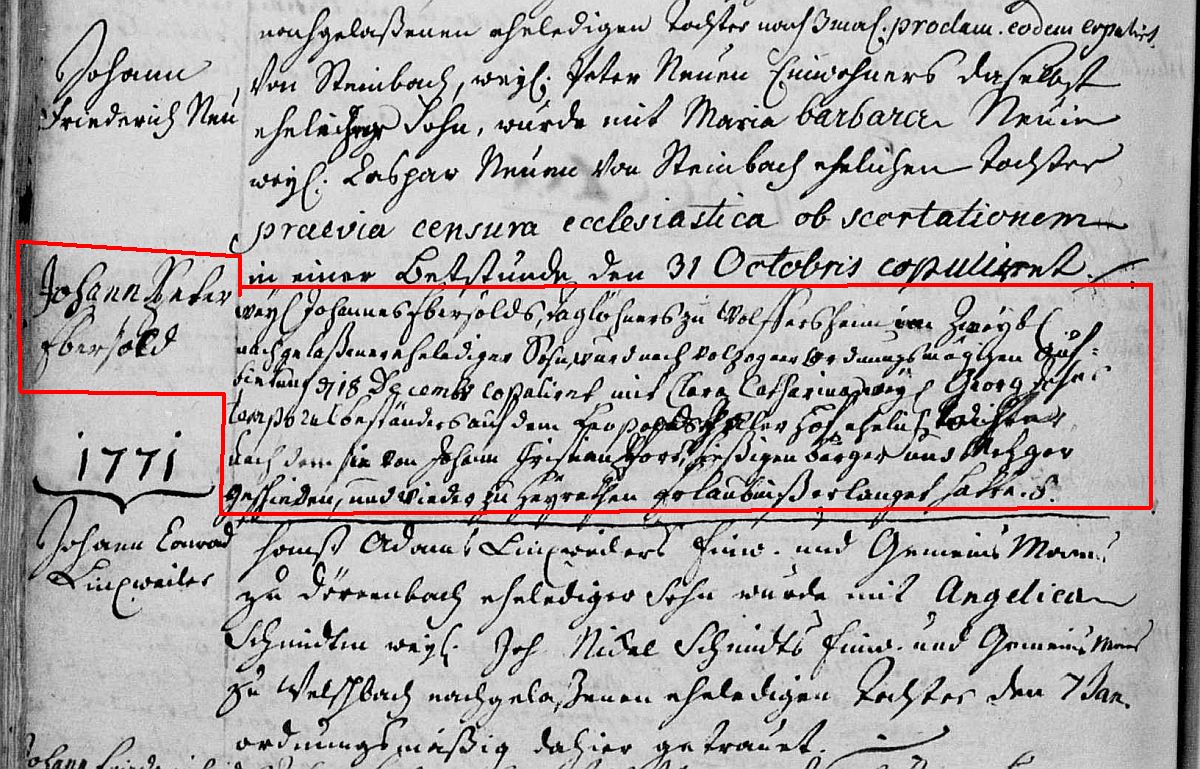 nachgelaßenen eheledigen Tochter nach 3mal. proclam. eodem copulirt.
Johann
Friederich Neu
Von Steinbach, weyl. Peter Neuen Einwohners daselbst
ehelicher Sohn, wurde mit Maria barbara Neuin
weyl. Caspar Neuen von Steinbach ehelichen Tochter
praevia censura ecclesiastica ob scortationem
in einer Betstunde den 31 Octobris copuliret.
Johann Peter
Ebersold
weyl Johannes Ebersolds, Taglöhners zu Wolffersheim im Zweyb.
nachgelaßener ehelediger Sohn, wurd nach volzogner Ordnungsmäßigen Auf-
bietung d 18 Decembr copuliret mit Clara Catharina, weyl Georg
Temporalbeständers auf dem Hof ehelich Tochter
nach dem sie von Johann hießigen bürger und Metzger
geschieden, und wieder zu heyrathen Erlaubniß erlanget hatte.
1771
Johann Conrad
Linxweiler
Hanß Adam Linxweilers Einw. und Gemeins Manns
zu Dörrenbach ehelediger Sohn wurde mit Angelica
Schmidtin weyl. Joh Nickel Schmidts Einw. und Gemeins Manns
zu Welschbach nachgelaßenen eheledigen Tochter den 7 Jan.
ordnungsmäßig dahier getrauet.
Johann